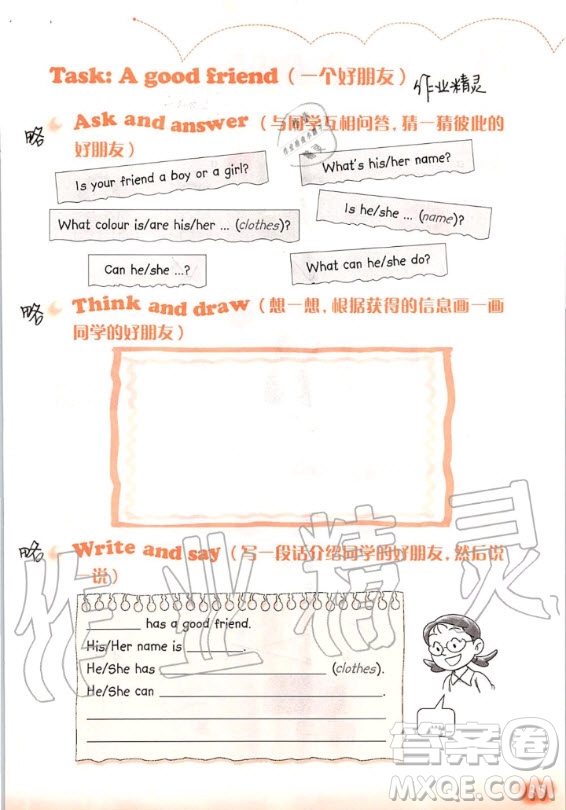 Task: A good friend（一个好朋友） 作业精灵
略 Ask and answer（与同学互相问答，猜一猜彼此的
好朋友）
Is your friend a boy or a girl?
What's his/her name?
What colour is/are his/her ... (clothes)?
Is he/she ... (name)?
Can he/she ...?
What can he/she do?
略 Think and draw（想一想，根据获得的信息画一画
同学的好朋友）
略 Write and say（写一段话介绍同学的好朋友，然后说一
说）
______ has a good friend.
His/Her name is ______.
He/She has ______ (clothes).
He/She can ______
作业精灵
答案圈
MXQE.COM